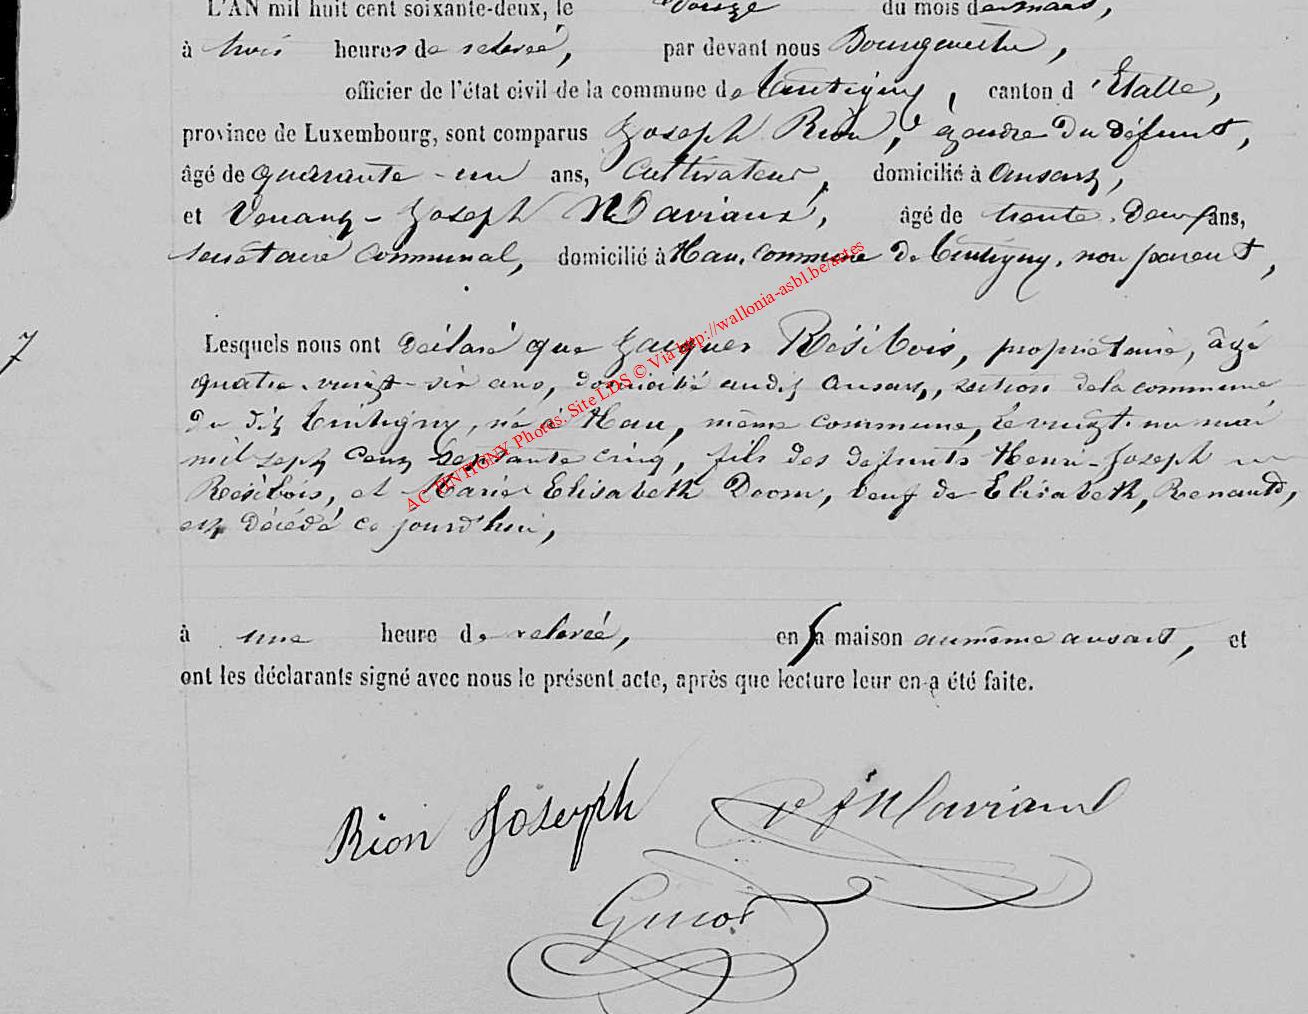 L'AN mil huit cent soixante-deux, le douze du mois de mars,
à trois heures de relevée, par devant nous Bourgmestre,
officier de l'état civil de la commune de Tintigny, canton d'Etalle,
province de Luxembourg, sont comparus Joseph Rion, gendre du défunt,
âgé de quarante-un ans, cultivateur, domicilié à ansart,
et Joseph âgé de trente-deux ans,
secrétaire communal, domicilié à Han, commune de Tintigny, non parent,
7
Lesquels nous ont déclaré que Jacques Résibois, propriétaire, âgé
quatre-vingt-six ans, domicilié audit ansart, section de la commune
du dit Tintigny, né à Han, même commune, le vingt-neuf mai
mil sept cent septante cinq, fils des défunts Henri-Joseph
Résibois, et Marie Elisabeth veuf de Elisabeth, Renauld,
est décédé ce jourd'hui,
à une heure de relevée, en sa maison au même ansart, et
ont les déclarants signé avec nous le présent acte, après que lecture leur en a été faite.
Rion Joseph
AC TINTIGNY Photos: Site LDS © Via http://wallonia-asbl.be/actes